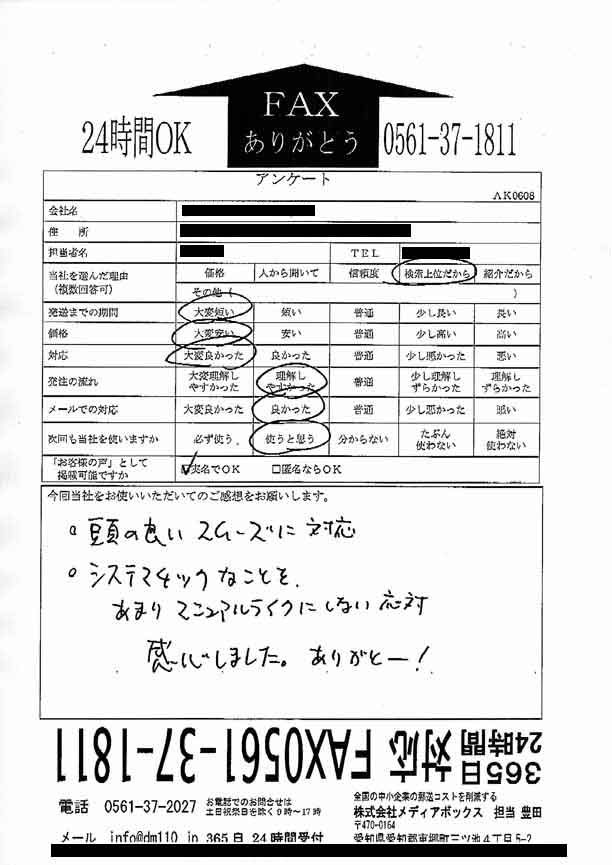 FAX
24時間OK
ありがとう
0561-37-1811
アンケート
AK0608
会社名
住　所
担当者名 TEL
当社を選んだ理由
(複数回答可)
価格 人から聞いて 信頼度 検索上位だから 紹介だから
その他 ( )
発送までの期間 大変短い 短い 普通 少し長い 長い
価格 大変安い 安い 普通 少し高い 高い
対応 大変良かった 良かった 普通 少し悪かった 悪い
発注の流れ 大変理解しやすかった 理解しやすかった 普通 少し理解しずらかった 理解しずらかった
メールでの対応 大変良かった 良かった 普通 少し悪かった 悪い
次回も当社を使いますか 必ず使う 使うと思う 分からない たぶん使わない 絶対使わない
「お客様の声」として
掲載可能ですか
☑実名でOK □匿名ならOK
今回当社をお使いいただいてのご感想をお願いします。
。頭の良い スムーズに 対応
。システマチックなことを、
あまり マニュアルライクにしない 応対
感心しました。ありがとー！
365日
24時間 対応 FAX0561-37-1811
電話 0561-37-2027 お電話でのお問合せは
土日祝祭日を除く9時〜17時
メール info@dm110.jp 365日 24時間受付
全国の中小企業の郵送コストを削減する
株式会社メディアボックス 担当 豊田
〒470-0164
愛知県愛知郡東郷町三ツ池4丁目5-2